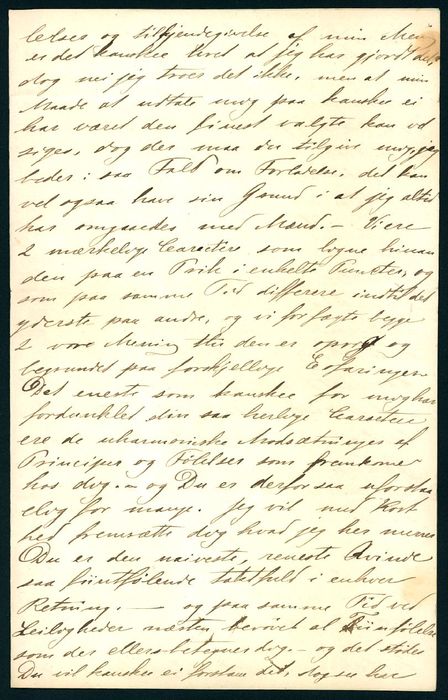 lelses og tilkjendegivelse af min Mening
er det kanskee Uret at jeg har gjordt det
dog nei jeg troer det ikke, men at min
Maade at udtale mig paa kanskee ei
har været den fineste valgte kan vel
siges, dog der maa du tilgive mig, jeg
beder i saa Fald om Forladelse, det kan
vel ogsaa have sin Grund i at jeg altid
har omgaaedes med Mænd. – Vi ere
2 mærkelige Caractere som ligne hinan
den paa en Prik i enkelte Puncter, og
som paa samme Tid differere indtil det
yderste paa andre, og vi forfægte begge
2 vore Mening thi den er og
begrundet paa forskjellige Erfaringer.
Det eneste som kanskee for mig har
fordunklet din saa herlige Caracter
ere de uharmoniske Modsætninger af
Principer og Følelser som fremkomme
hos dig. – og Du er derfor saa uforstaa
elig for mange. Jeg vil med Kort
hed fremsætte dig hvad jeg her mener
Du er den naiveste, reneste Qvinde
saa fiintfølende taktfuld i enhver
Retning. – og paa samme Tid ved
Leiligheder næsten berøvet al Fiinfølelse
som der ellers betegner dig – og det støder
Du vil kanskee ei forstaa det, dog se her